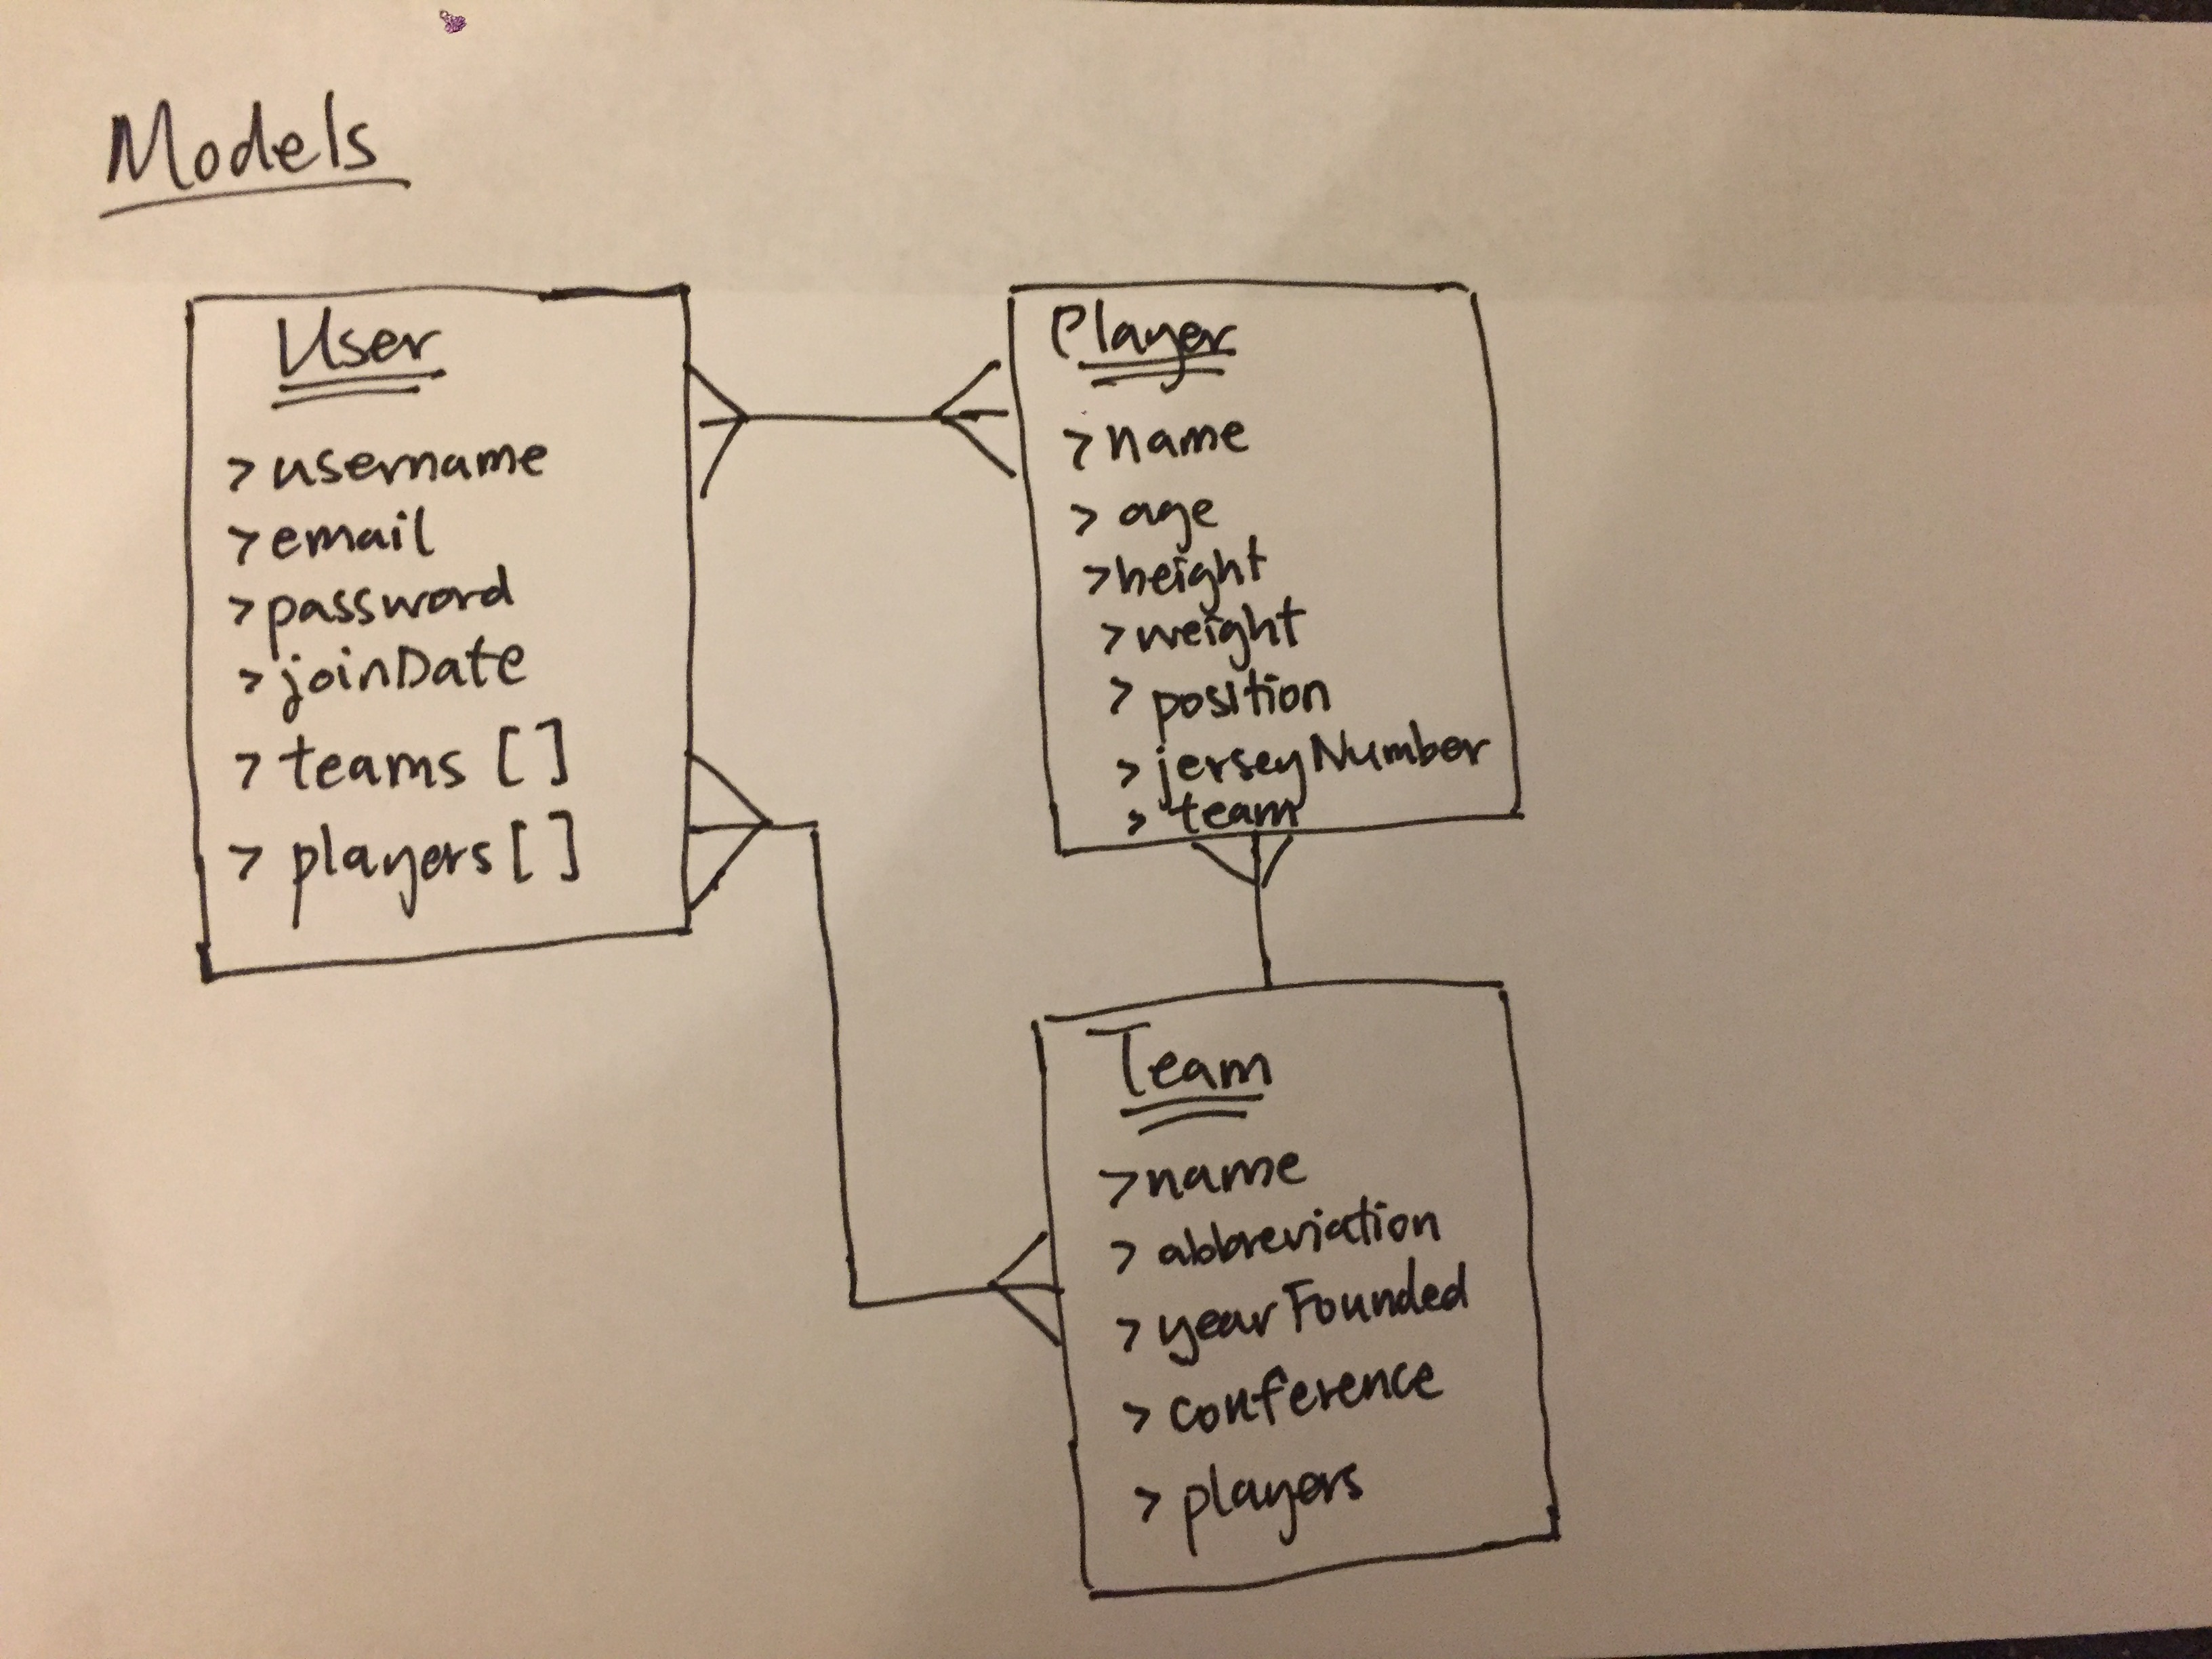 Models
User
> username
> email
> password
> joinDate
> teams []
> players []
Player
> name
> age
> height
> weight
> position
> jerseyNumber
> team
Team
> name
> abbreviation
> yearFounded
> conference
> players